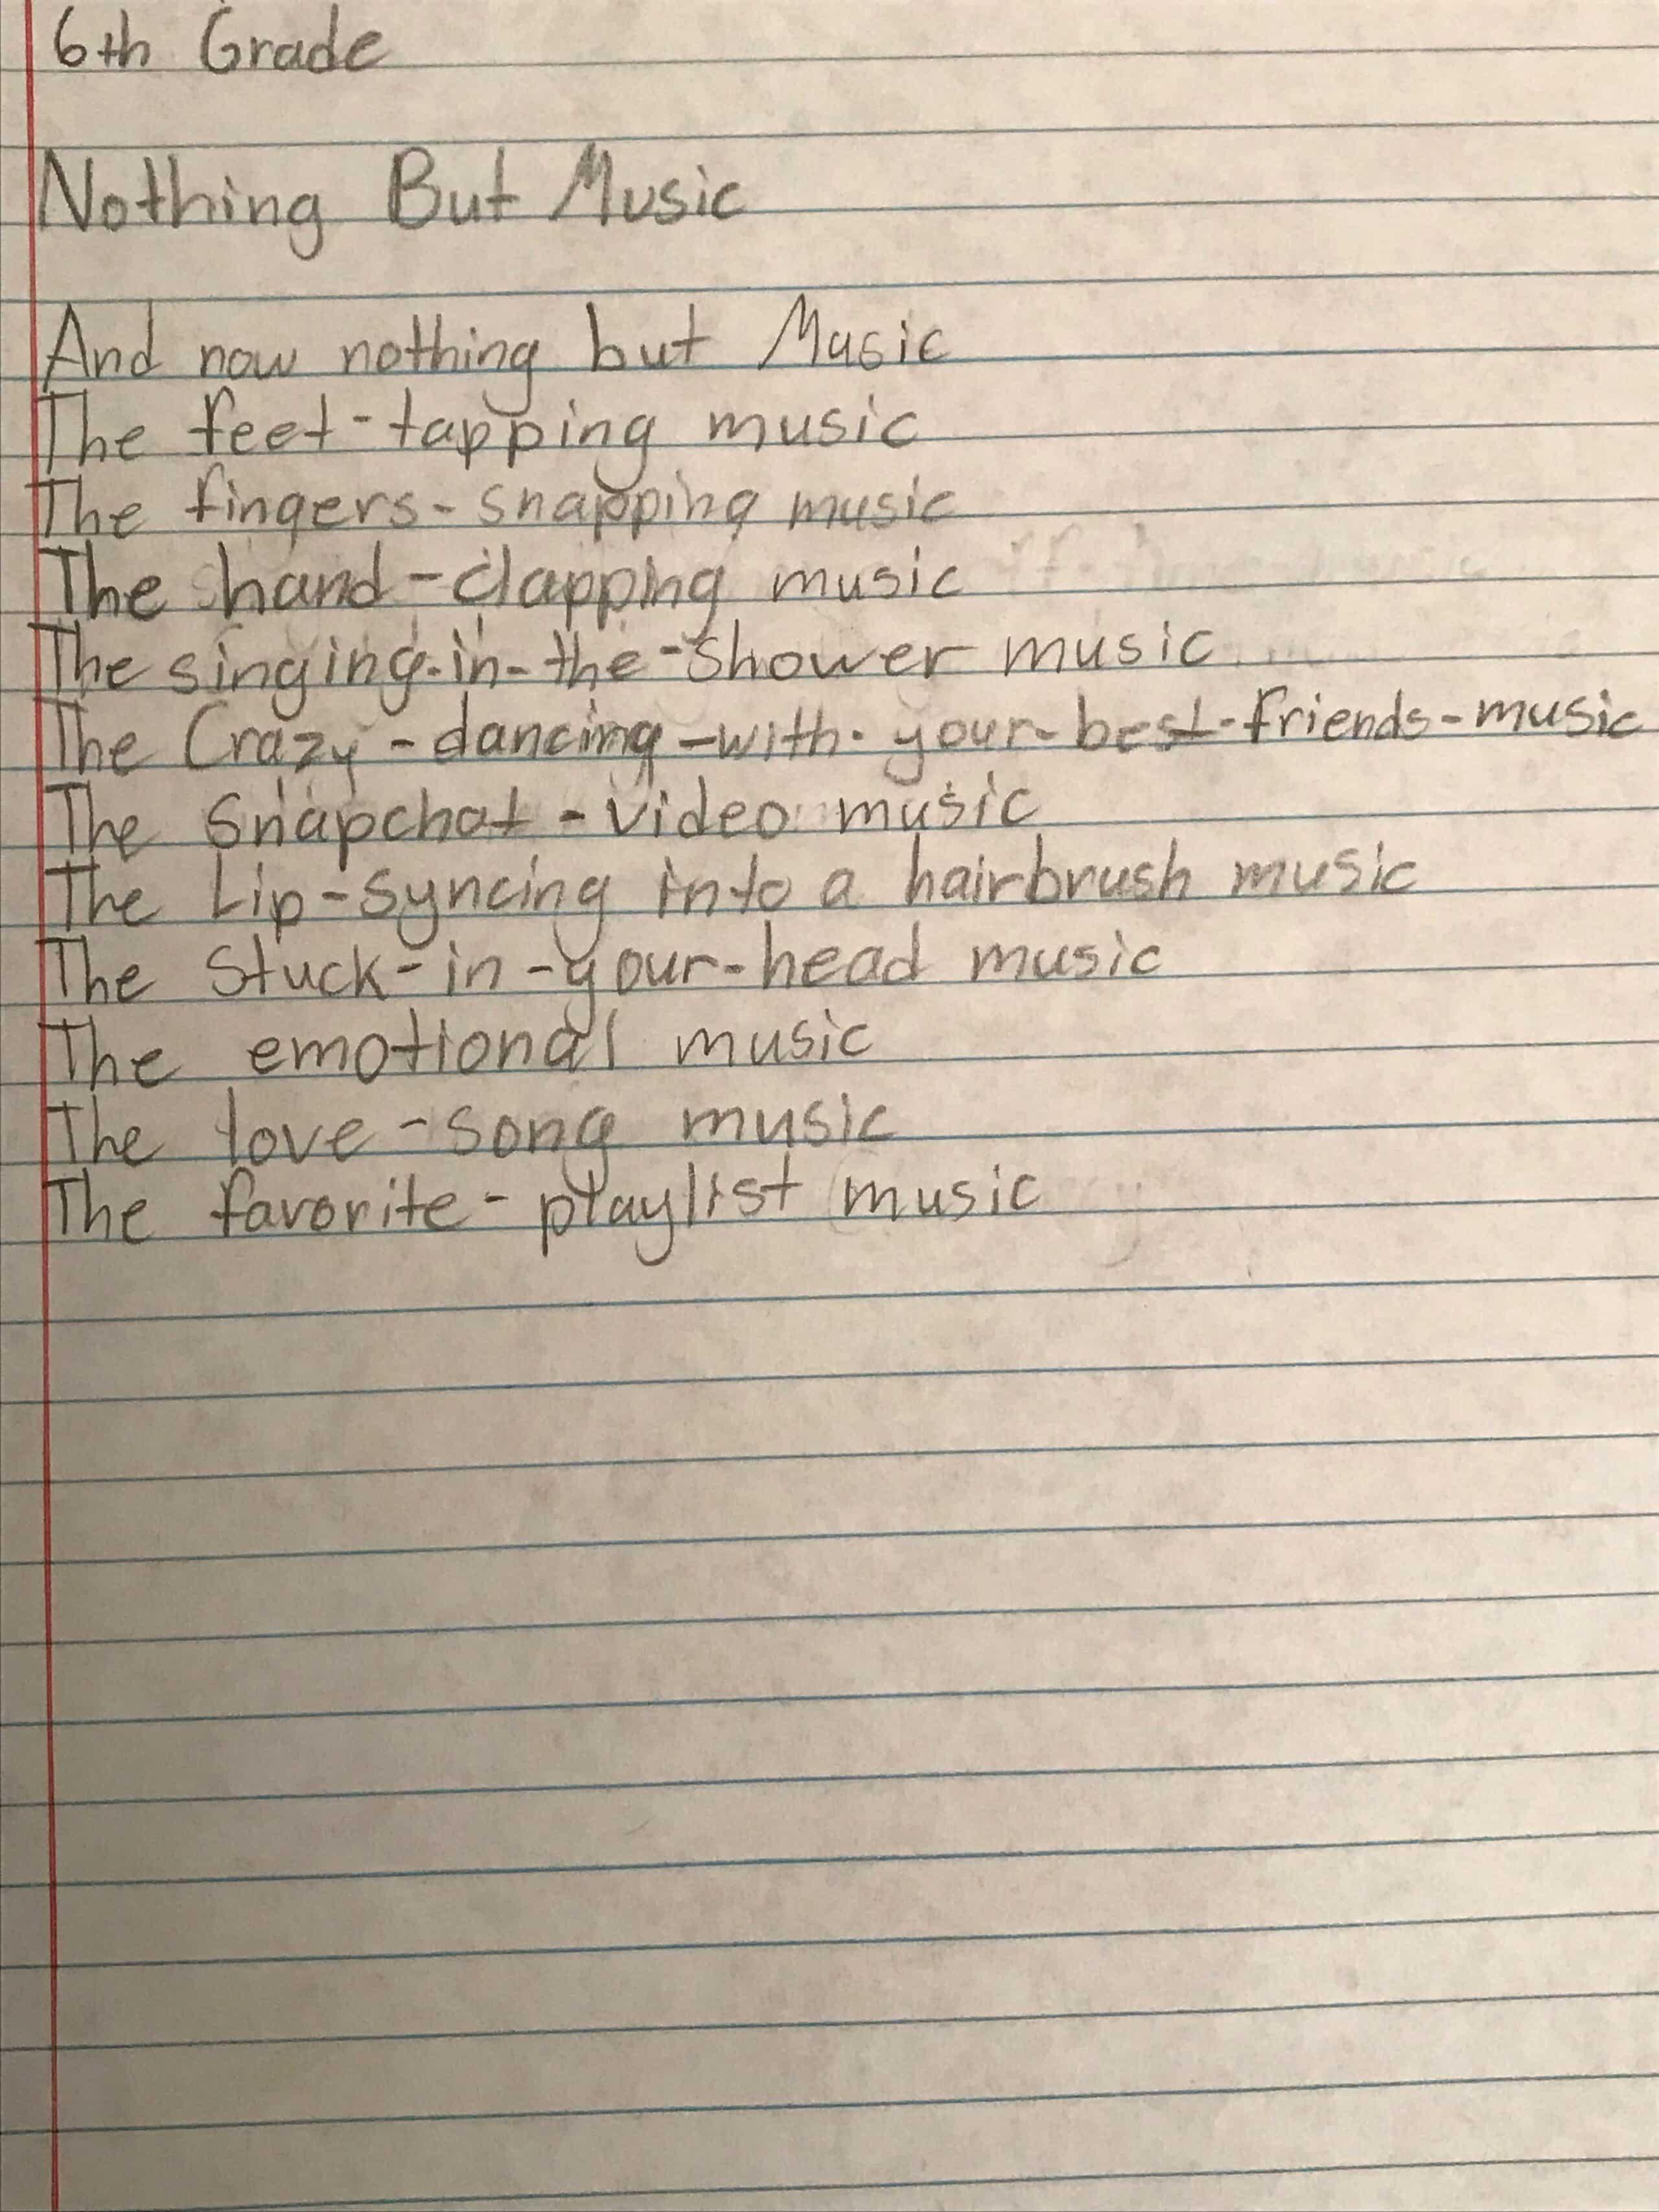 6th Grade
Nothing But Music
And now nothing but Music
The feet-tapping music
The fingers-snapping music
The hand-clapping music
The singing-in-the-shower music
The Crazy-dancing-with-your-best-friends-music
The Snapchat-video music
The Lip-syncing into a hairbrush music
The Stuck-in-your-head music
The emotional music
The love-song music
The favorite-playlist music